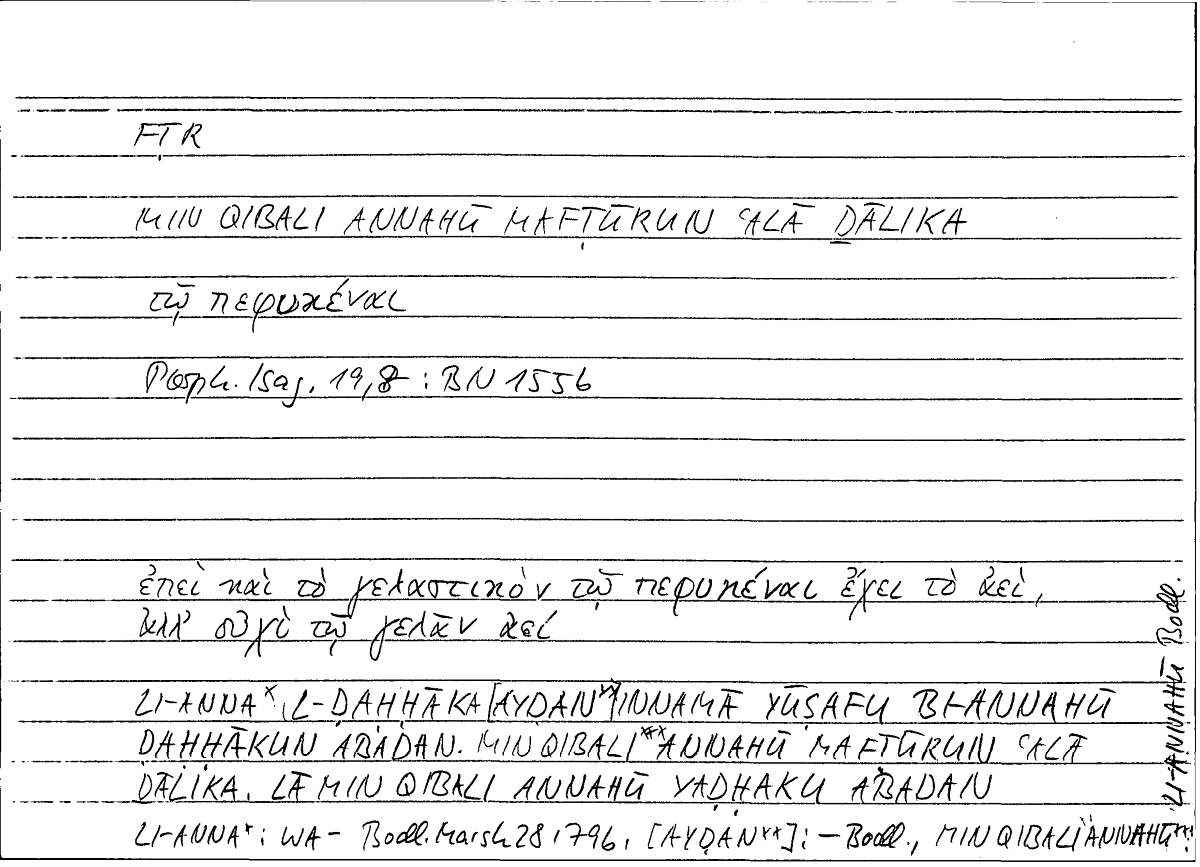 FṬR
MIN QIBALI ANNAHŪ MAFṬŪRUN ʿALĀ ḎĀLIKA
τῷ πεφυκέναι
Porph. Isag. 19,8 : BN 155b
ἐπεὶ καὶ τὸ γελαστικὸν τῷ πεφυκέναι ἔχει τὸ ἀεί,
ἀλλ' οὐχὶ τῷ γελᾶν ἀεί
LI-ANNA* L-ḌAḤḤĀKA [AYḌAN**] INNAMĀ YŪṢAFU BI-ANNAHŪ
ḌAḤḤĀKUN ABADAN. MIN QIBALI*** ANNAHŪ MAFṬŪRUN ʿALĀ
ḎĀLIKA. LĀ MIN QIBALI ANNAHŪ YAḌḤAKU ABADAN
LI-ANNA*: WA- Bodl. Marsh 28, 79b, [AYḌAN**]: – Bodl., MIN QIBALI ANNAHŪ***:
LI-ANNAHŪ Bodl.